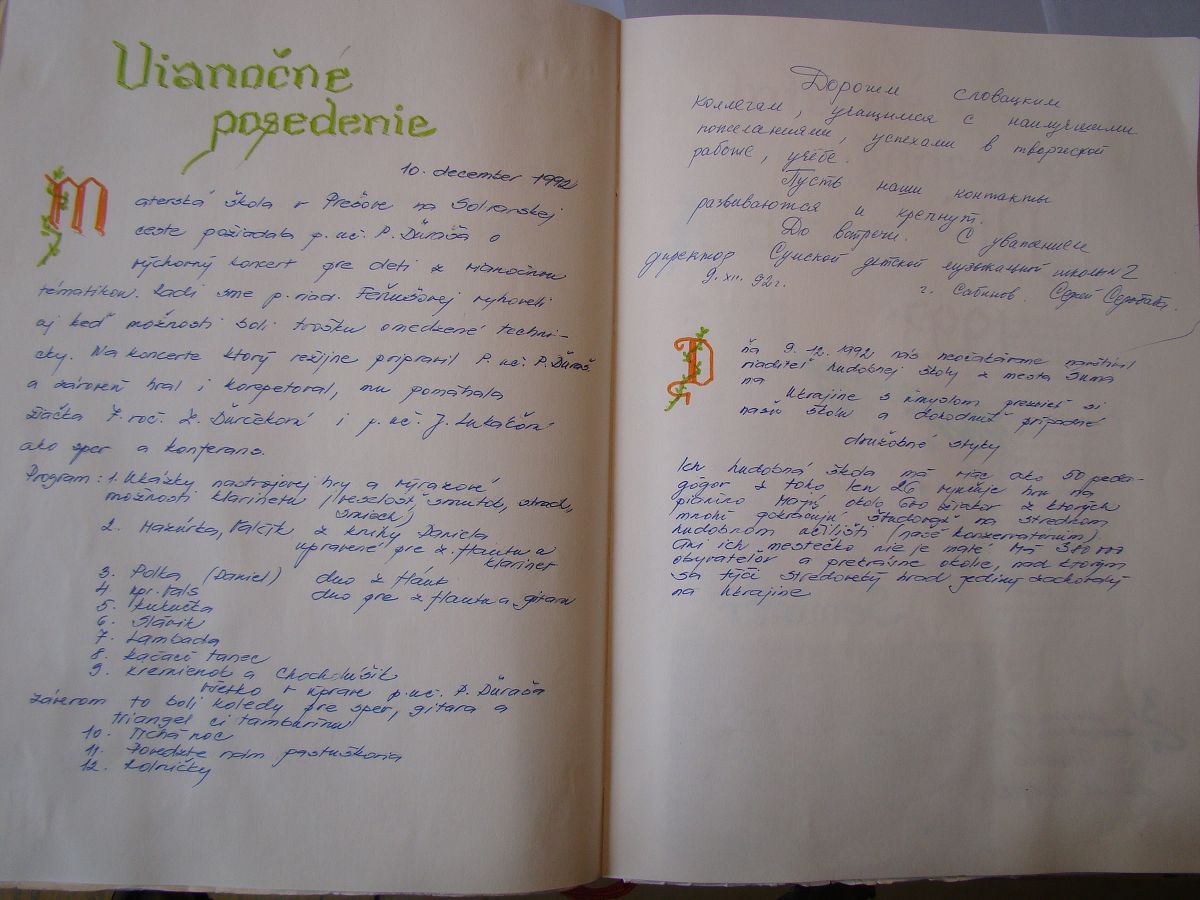 Vianočné
posedenie
10. december 1992
Materská škola v Prešove na Solivarskej
ceste požiadala p. uč. P. Ďuraša o
výchovný koncert pre deti z vianočnou
tématikou. Radi sme p. riad. Feňušovej vyhoveli
aj keď možnosti boli trošku omedzené techni-
cky. Na koncerte ktorý režijne pripravil p. uč. P. Ďuraš
a zároveň hral i korepetoval, mu pomáhala
žiačka 7. roč. Z. Ďurčeková i p. uč. J. Lukáčová
ako spev a konferans.
Program: 1. Ukážky nastrojovej hry a výrazové
možnosti klarinetu (veselosť, smutok, strach,
smiech)
2. Mazúrka, Valčík z knihy Daniela
upravené pre z. flautu a
klarinet
3. Polka (Daniel) duo z fláut
4 Vals duo pre z flautu a gitaru
5. Kukučka
6. Slávik
7. Lambada
8. Kačací tanec
9. Kremienok a Chocholúšik
všetko v úprave p. uč. P. Ďuraša
záverom to boli koledy pre spev, gitara a
triangel či tamburínu
10. Tichá noc
11. Povedzte nám pastuškovia
12. Rolničky
Дорогим словацким
коллегам, учащимся с наилучшими
пожеланиями, успехами в творческой
работе, учёбе.
Пусть наши контакты
развиваются и крепнут.
До встречи. С уважением
директор Сумской детской музыкальной школы №2
9. XII. 92г. г. Сабинов. Сергей
Dňa 9. 12. 1992 nás neočakávane navštívil
riaditeľ hudobnej školy z mesta Suma
na
Ukrajine s úmyslom prezrieť si
našu školu a dohodnúť prípadné
družobné styky
Ich hudobná škola má viac ako 50 peda-
gógov z toho len 26 vyučuje hru na
pianíno Majú okolo 670 žiakov z ktorých
mnohí pokračujú študovať na strednom
hudobnom učilišti (naše konzervatórium).
Ani ich mestečko nie je malé. Má 380 000
obyvateľov a prekrásne okolie, nad ktorým
sa týči stredoveký hrad jediný zachovalý
na Ukrajine